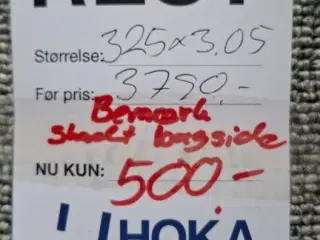 REST
Størrelse: 325x3.05
Før pris: 3790,-
Bemærk
skadet bagside
NU KUN: 500,-
HOKA